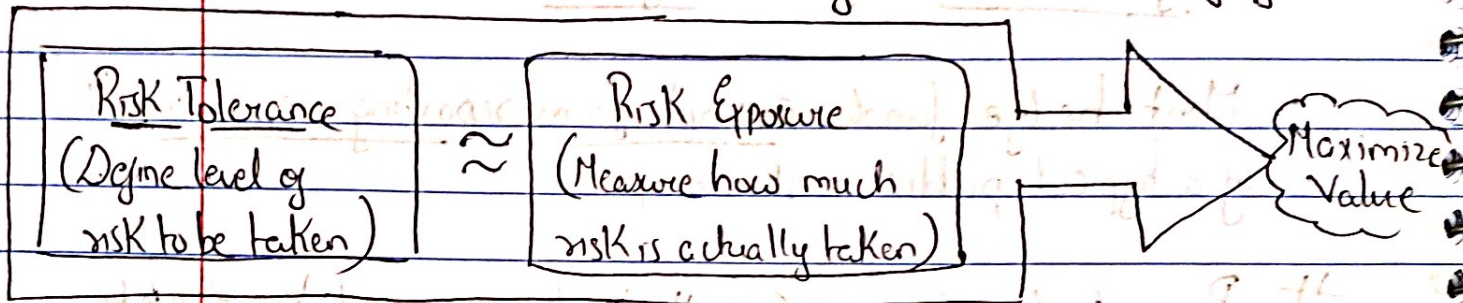 Risk Tolerance
(Define level of
risk to be taken)
≈
Risk Exposure
(Measure how much
risk is actually taken)
Maximize
Value